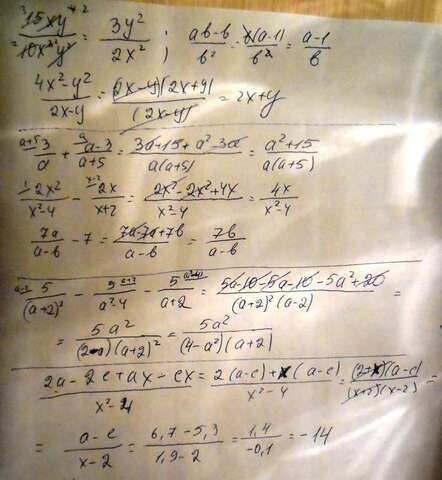 15xy⁴ / 10x³y² = 3y² / 2x² ; ab-b / b² = b(a-1) / b² = a-1 / b
4x²-y² / 2x-y = (2x-y)(2x+y) / (2x-y) = 2x+y
a+5 3 / a + a a-3 / a+5 = 3a+15+a²-3a / a(a+5) = a²+15 / a(a+5)
1 2x² / x²-4 - x-2 2x / x+2 = 2x²-2x²+4x / x²-4 = 4x / x²-4
7a / a-b - 7 = 7a-7a+7b / a-b = 7b / a-b
a-2 5 / (a+2)² - 5 a+2 / a²-4 - 5 / a+2 = 5a-10-5a-10-5a²+20 / (a+2)²(a-2) =
= 5a² / (2-a)(a+2)² = 5a² / (4-a²)(a+2)
2a-2c+ax-cx / x²-4 = 2(a-c)+x(a-c) / x²-4 = (2+x)(a-c) / (x+2)(x-2) =
= a-c / x-2 = 6,7-5,3 / 1,9-2 = 1,4 / -0,1 = -14